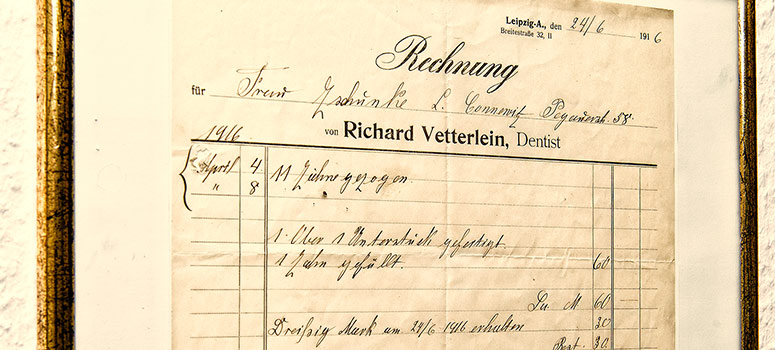 Leipzig-A., den 24/6 1916
Breitestraße 32, II
Rechnung
für Frau Zschunke L. Connewitz Pegauerstr. 58.
1916. von Richard Vetterlein, Dentist
April 4 11 Zähne gezogen.
" 8
1 Ober 1 Unterstück gefestigt.
1 Zahn gefüllt. 60
M 60
Dreißig Mark am 24/6 1916 erhalten 30
Rest. 30